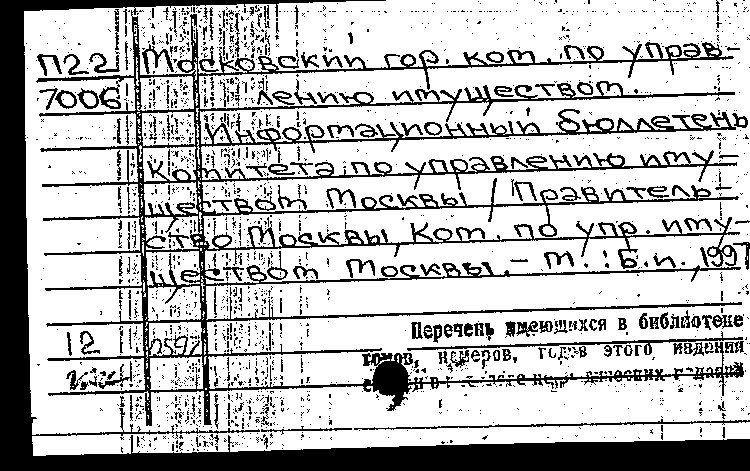 П22 Московский гор. ком. по управ-
7006 лению имуществом.
Информационный бюллетень
Комитета по управлению иму-
ществом Москвы / Правитель-
ство Москвы, Ком. по упр. иму-
ществом Москвы. - М. : Б.и., 1997
Перечень имеющихся в библиотеке
12 0597
томов, номеров, годов этого издания